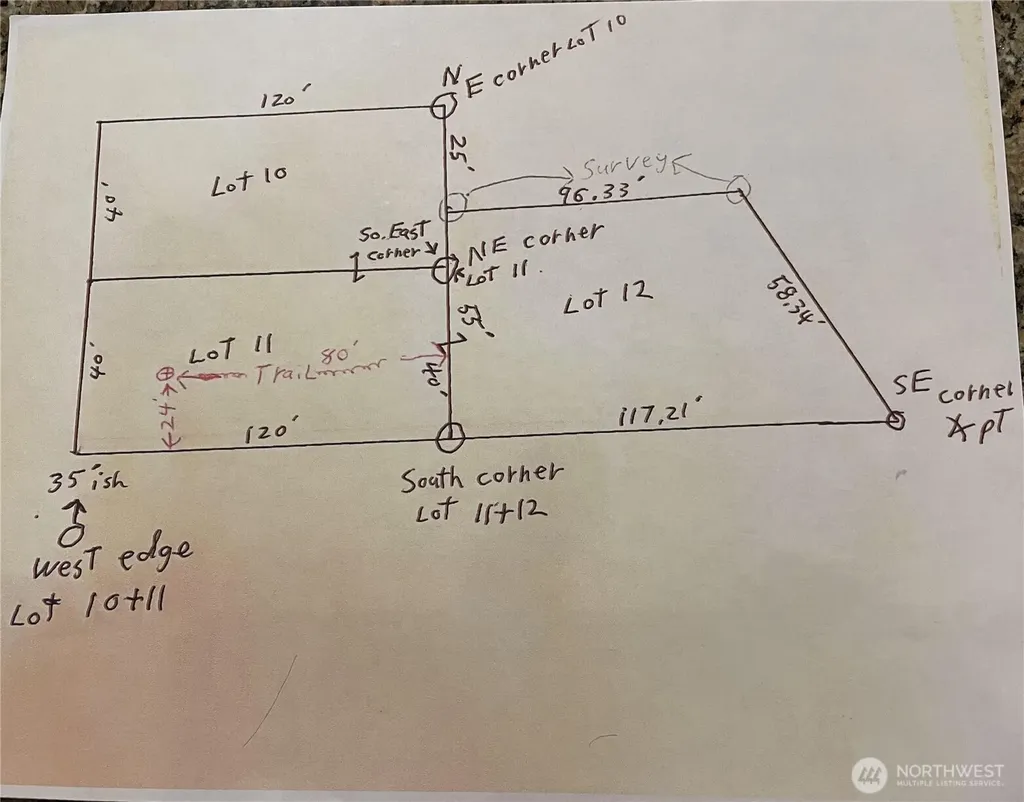 N
E corner Lot 10
120'
25'
Survey
96.33'
40'
Lot 10
So. East
corner
NE corner
Lot 11.
Lot 12
58.34'
55'
40'
Lot 11
80'
Trail
40'
24'
120'
117,21'
SE corner
pT
35'ish
South corner
Lot 11+12
West edge
Lot 10+11
NORTHWEST
MULTIPLE LISTING SERVICE